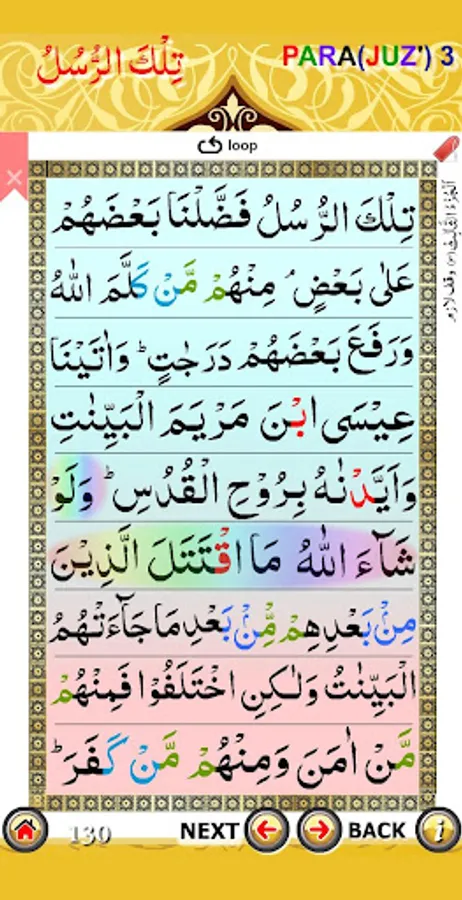 تِلْكَ الرُّسُلُ
PARA(JUZ') 3
loop
اَلْجُزْءُ الثَّالِثُ (٣) وقف لازم
تِلْكَ الرُّسُلُ فَضَّلْنَا بَعْضَهُمْ
عَلٰى بَعْضٍ ۘ مِنْهُمْ مَّنْ كَلَّمَ اللّٰهُ
وَرَفَعَ بَعْضَهُمْ دَرَجٰتٍ ؕ وَاٰتَيْنَا
عِيْسَى ابْنَ مَرْيَمَ الْبَيِّنٰتِ
وَاَيَّدْنٰهُ بِرُوْحِ الْقُدُسِ ؕ وَلَوْ
شَآءَ اللّٰهُ مَا اقْتَتَلَ الَّذِيْنَ
مِنْۢ بَعْدِهِمْ مِّنْۢ بَعْدِ مَا جَآءَتْهُمُ
الْبَيِّنٰتُ وَلٰكِنِ اخْتَلَفُوْا فَمِنْهُمْ
مَّنْ اٰمَنَ وَمِنْهُمْ مَّنْ كَفَرَ ؕ
130
NEXT
BACK
i